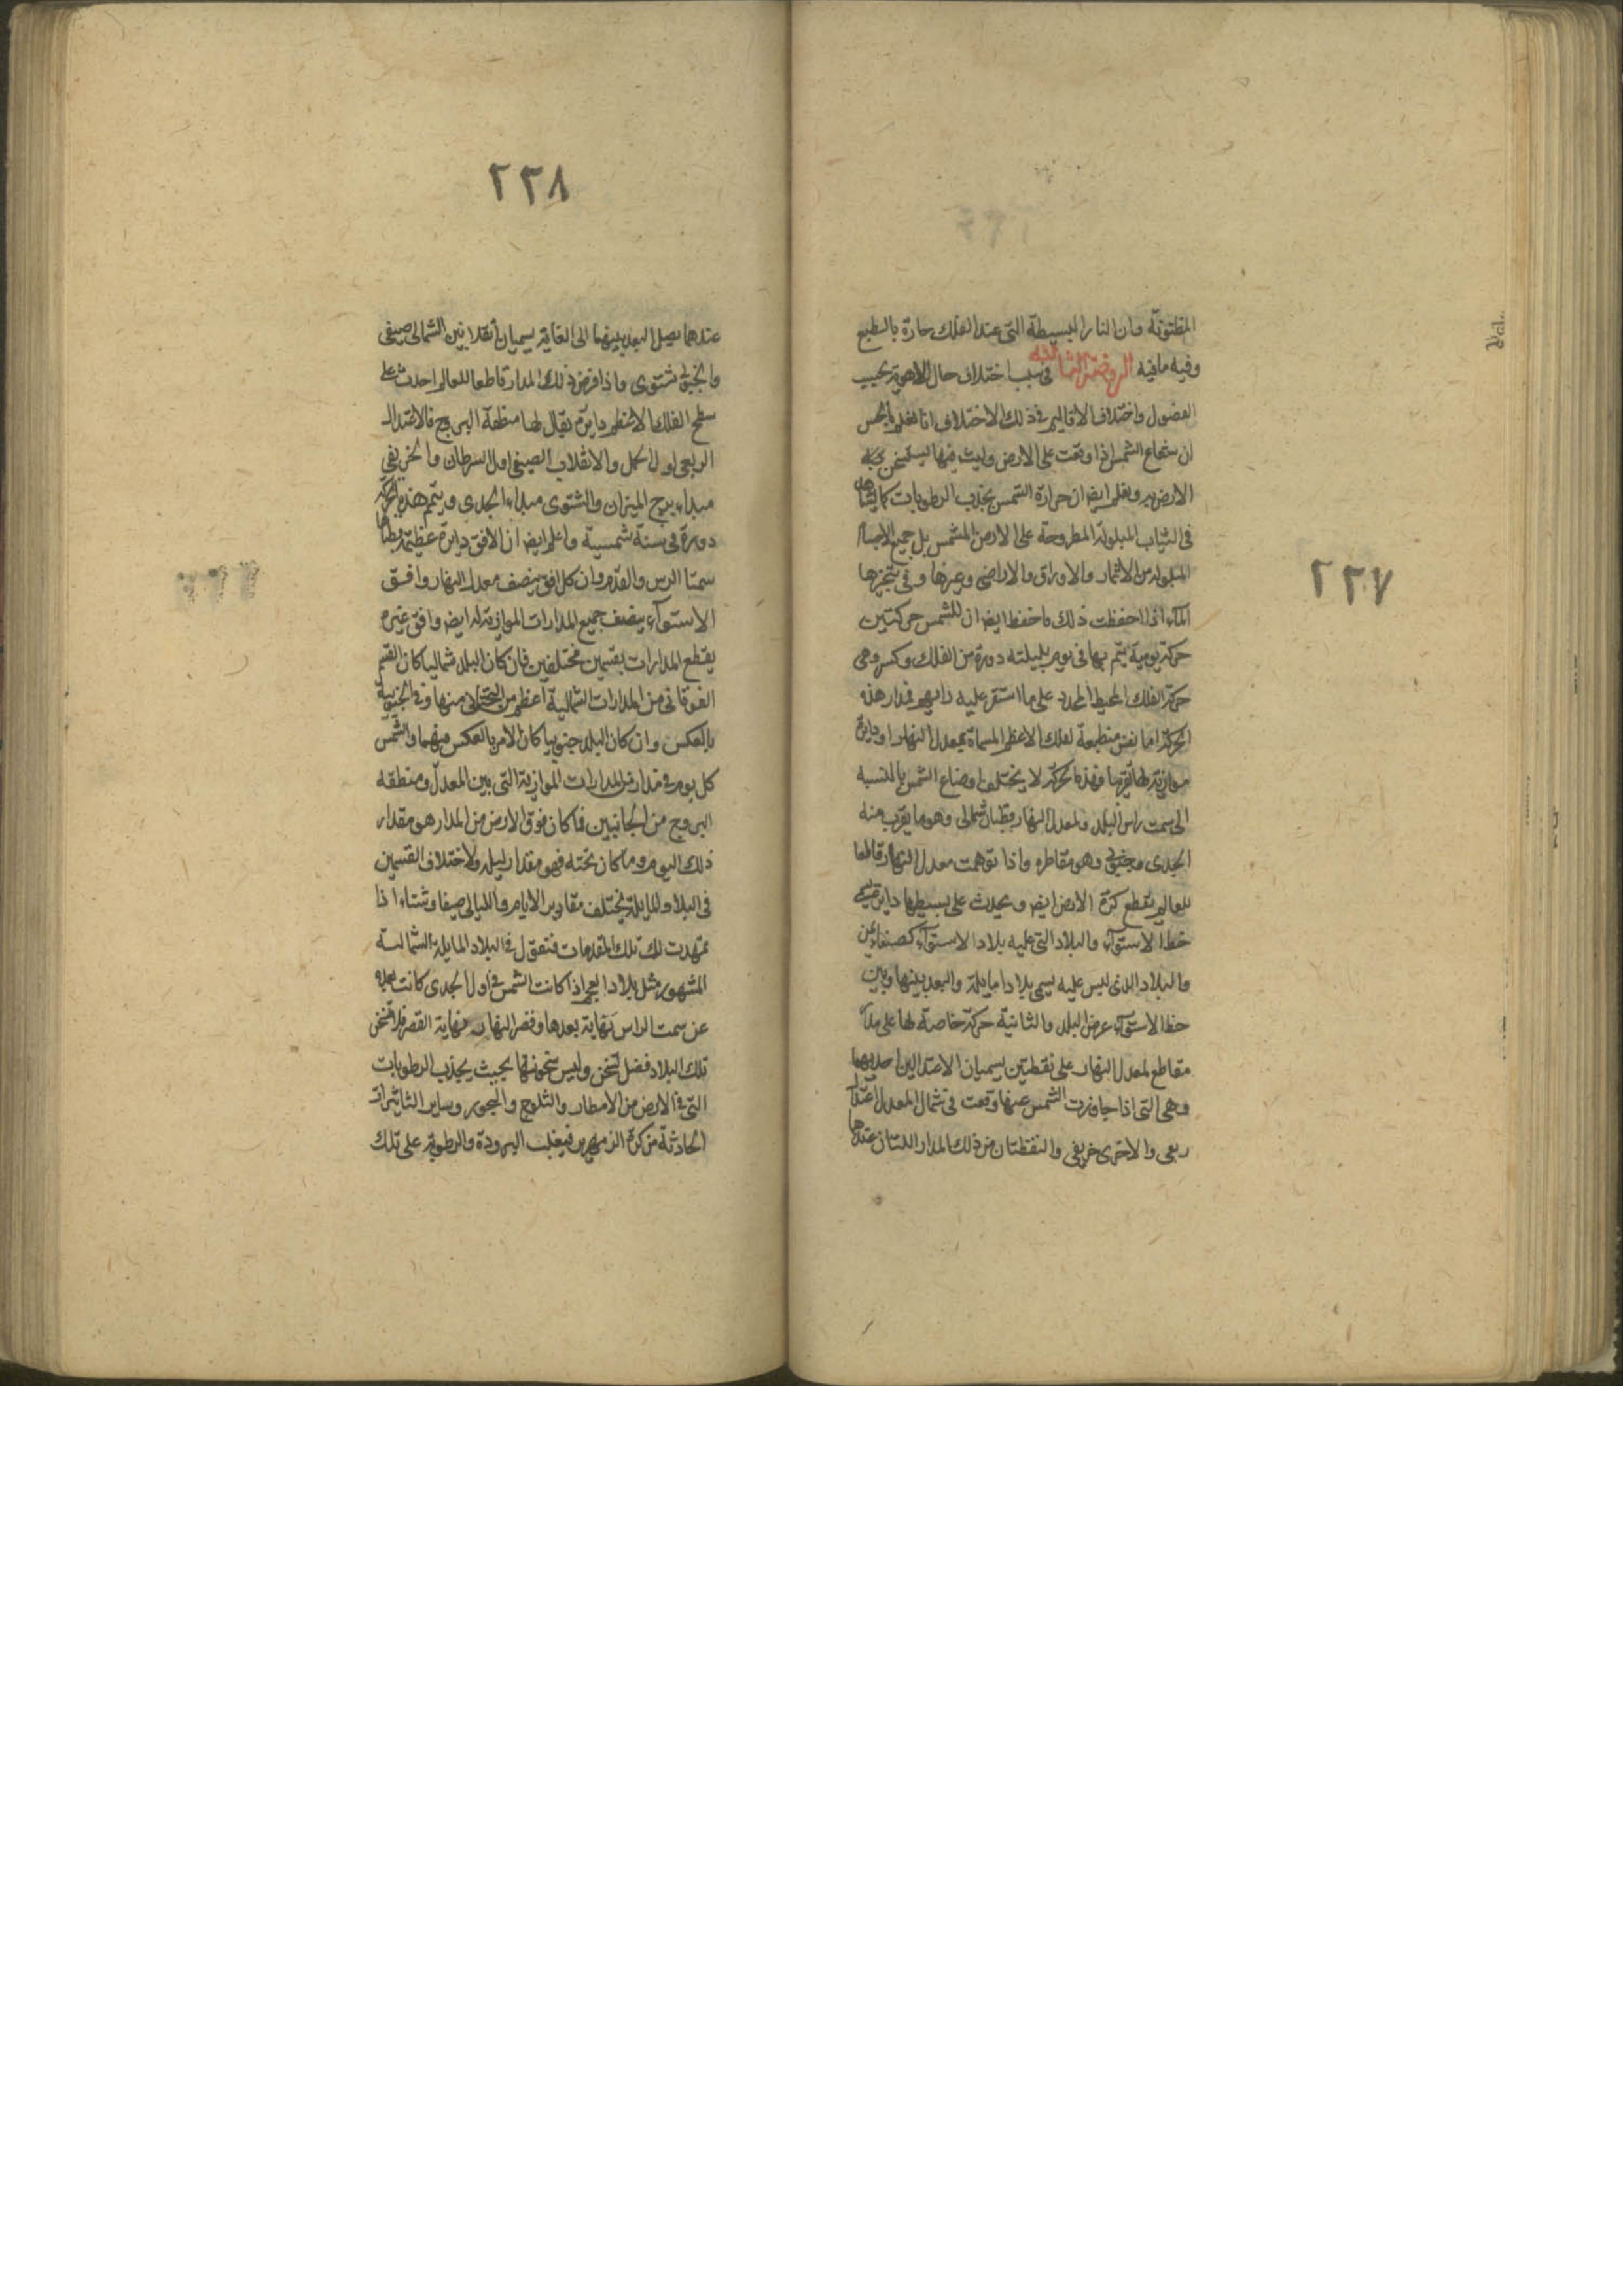 ٢٣٧
المظنونة وان النار البسيطة التى عند الفلك حارة بالطبع
وفيه مافيه الروضة الثالثة فى سبب اختلاف حال الاهوية بحسب
الفصول واختلاف الاقاليم فى ذلك الاختلاف انا نعلم بالحس
ان شعاع الشمس اذا وقعت على الارض ولبث فيها يستسخن
الارض به ونعلم ايضا ان حرارة الشمس يجذب الرطوبات كما يشاهد
فى الثياب المبلولة المطروحة على الارض المشمس بل جميع الاجسام
المبلولة من الاثمار والاوراق والاراضى وغيرها وفى تبخيرها
الماء اذا حفظت ذلك فاحفظ ايضا ان للشمس حركتين
حركة يومية يتم بها فى يوم بليلته دورة من الفلك وكسر وهى
حركة الفلك المحيط المحدد على ما استقر عليه رايهم فمدار هذه
الحركة اما نفس منطبعة لفلك الاعظم المسماة بمعدل النهار او دايرة
موازية لها فبهذه الحركة لا يختلف اوضاع الشمس بالنسبه
الى سمت راس البلد ولمعدل النهار قطبان شمالى وهو ما يقرب منه
الجدى وجنوبى وهو مقاطره واذا توهمت معدل النهار قاطعا
للعالم يقطع كرة الارض ايضا ويحدث على بسيطها دايرة هى
خط الاستواء والبلاد التى عليه بلاد الاستواء كصنعاء يمن
والبلاد الذى ليس عليه يسمى بلادا مايلة والبعد بينها وبين
خط الاستواء عرض البلد والثانية حركة خاصة لها على مدار
مقاطع لمعدل النهار على نقطتين يسميان الاعتدالين احديهما
وهى التى اذا جاوزت الشمس عنها وقعت فى شمال المعدل اعتدال
ربعى والاخرى خريفى والنقطتان من ذلك المدار اللتان عندها
٢٣٨
عندهما يصل البعد بينهما الى الغاية يسميان انقلابين الشمالى صيفى
والجنوبى شتوى واذا فرض ذلك المدار قاطعا للعالم احدث على
سطح الفلك الاعظم دايرة يقال لها منطقة البروج فالاعتدال
الربعى اول الحمل والانقلاب الصيفى اول السرطان والخريفى
مبداء برج الميزان والشتوى مبداء الجدى ويتم هذه الحركة
دورة فى سنة شمسية واعلم ايضا ان الافق دايرة عظيمة قطباها
سمتا الرس والقدم وان كل افق ينصف معدل النهار وافق
الاستواء ينصف جميع المدارات الموازية له ايضا وافق غيره
يقطع المدارات بقسمين مختلفين فان كان البلد شماليا كان القسم
الفوقانى من المدارات الشمالية اعظم من التحتانى منها وفى الجنوبية
بالعكس وان كان البلد جنوبيا كان الامر بالعكس فيهما والشمس
كل يوم فى مدار من المدارات الموازية التى بين المعدل ومنطقه
البروج من الجانبين فما كان فوق الارض من المدار هو مقدار
ذلك اليوم وما كان تحته فهو مقدار ليله ولاختلاف القسمين
فى البلاد المايلة يختلف مقادير الايام والليالى صيفا وشتاء اذا
تمهدت لك تلك المقدمات فنقول فى البلاد المايلة الشمالية
المشهورة مثل بلاد العجم اذا كانت الشمس فى اول الجدى كانت بعده
عن سمت الراس نهاية بعدها وقصر النهار نهاية القصر فلا تسخن
تلك البلاد فضل تسخن وليس سخونتها بحيث يجذب الرطوبات
التى فى الارض من الامطار والثلوج والبحور وساير التاثيرات
الحادثة من كرة الزمهرير فيغلب البرودة والرطوبة على تلك